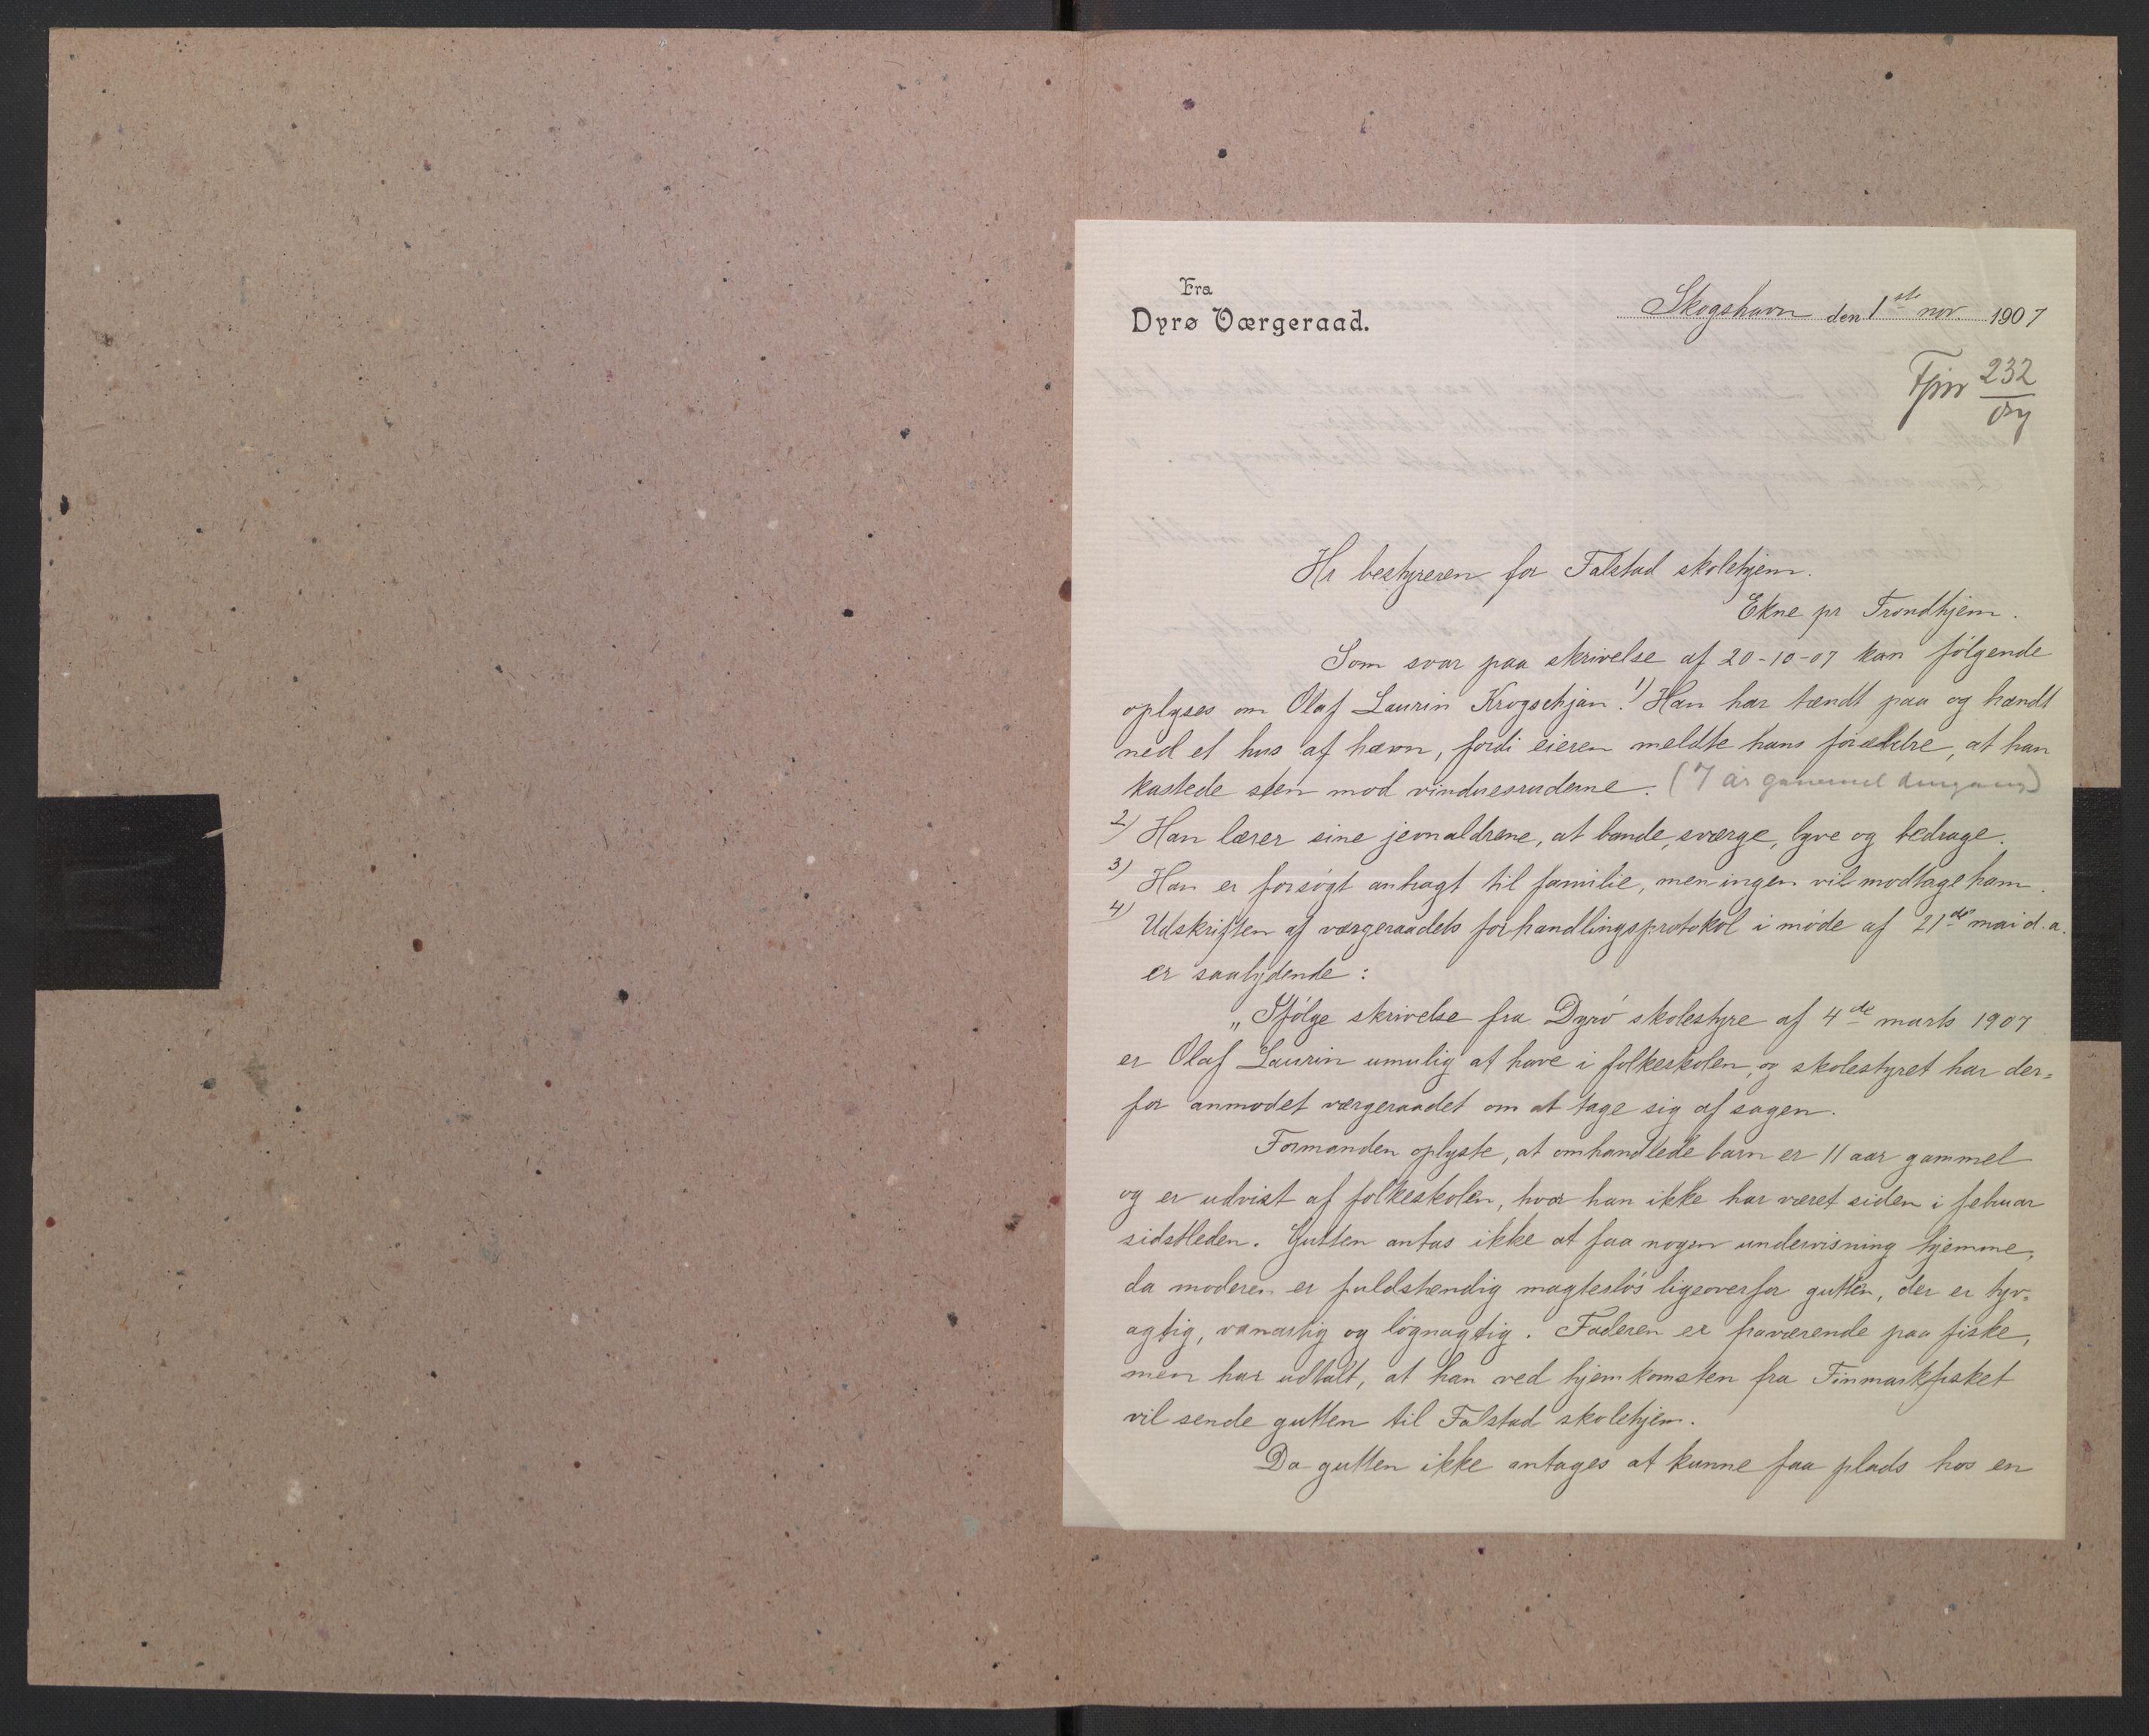 Fra
Dyrø Værgeraad.
Skogshavn den 1ste nov. 1907
232
Hr bestyreren for Falstad skolehjem.
Ekne pr Trondhjem.
Som svar paa skrivelse af 20-10-07 kan følgende
oplyses om Olaf Laurin Krogsehjan. 1) Han har tændt paa og brændt
ned et hus af hævn, fordi eieren meldte hans forældre, at han
kastede sten mod vinduesruderne. (7 år gammel dengang)
2) Han lærer sine jevnaldrene, at bande, sværge, lyve og bedrage.
3) Han er forsøgt anbragt til familie, men ingen vil modtage ham.
4) Udskriften af værgeraadets forhandlingsprotokol i møde af 21de mai d.a.
er saalydende:
„Ifølge skrivelse fra Dyrø skolestyre af 4de marts 1907
er Olaf Laurin umulig at have i folkeskolen, og skolestyret har der=
for anmodet værgeraadet om at tage sig af sagen.
Formanden oplyste, at omhandlede barn er 11 aar gammel
og er udvist af folkeskolen, hvor han ikke har været siden i februar
sidstleden. Gutten antas ikke at faa nogen undervisning hjemme,
da moderen er fuldstændig magtesløs ligeoverfor gutten, der er tyv=
agtig, vanartig og løgnagtig. Faderen er fraværende paa fiske,
men har udtalt, at han ved hjemkomsten fra Finmarkfisket
vil sende gutten til Falstad skolehjem.
Da gutten ikke antages at kunne faa plads hos en